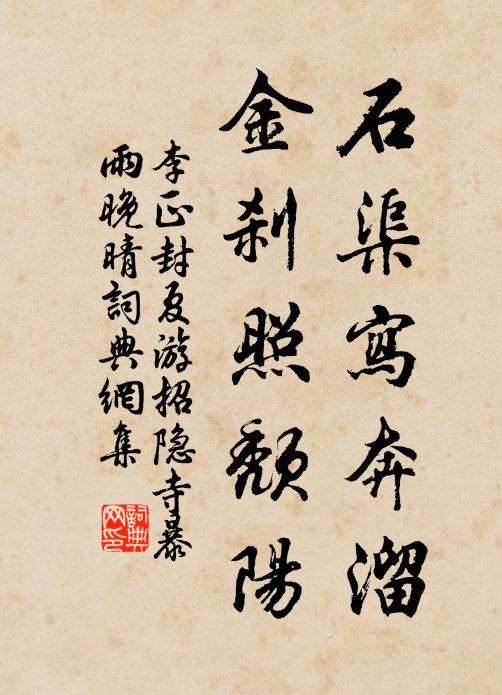 石渠寫奔溜
金刹照頽陽
李正封夏游招隐寺暴
雨晚晴詞典網集
詞典
网印